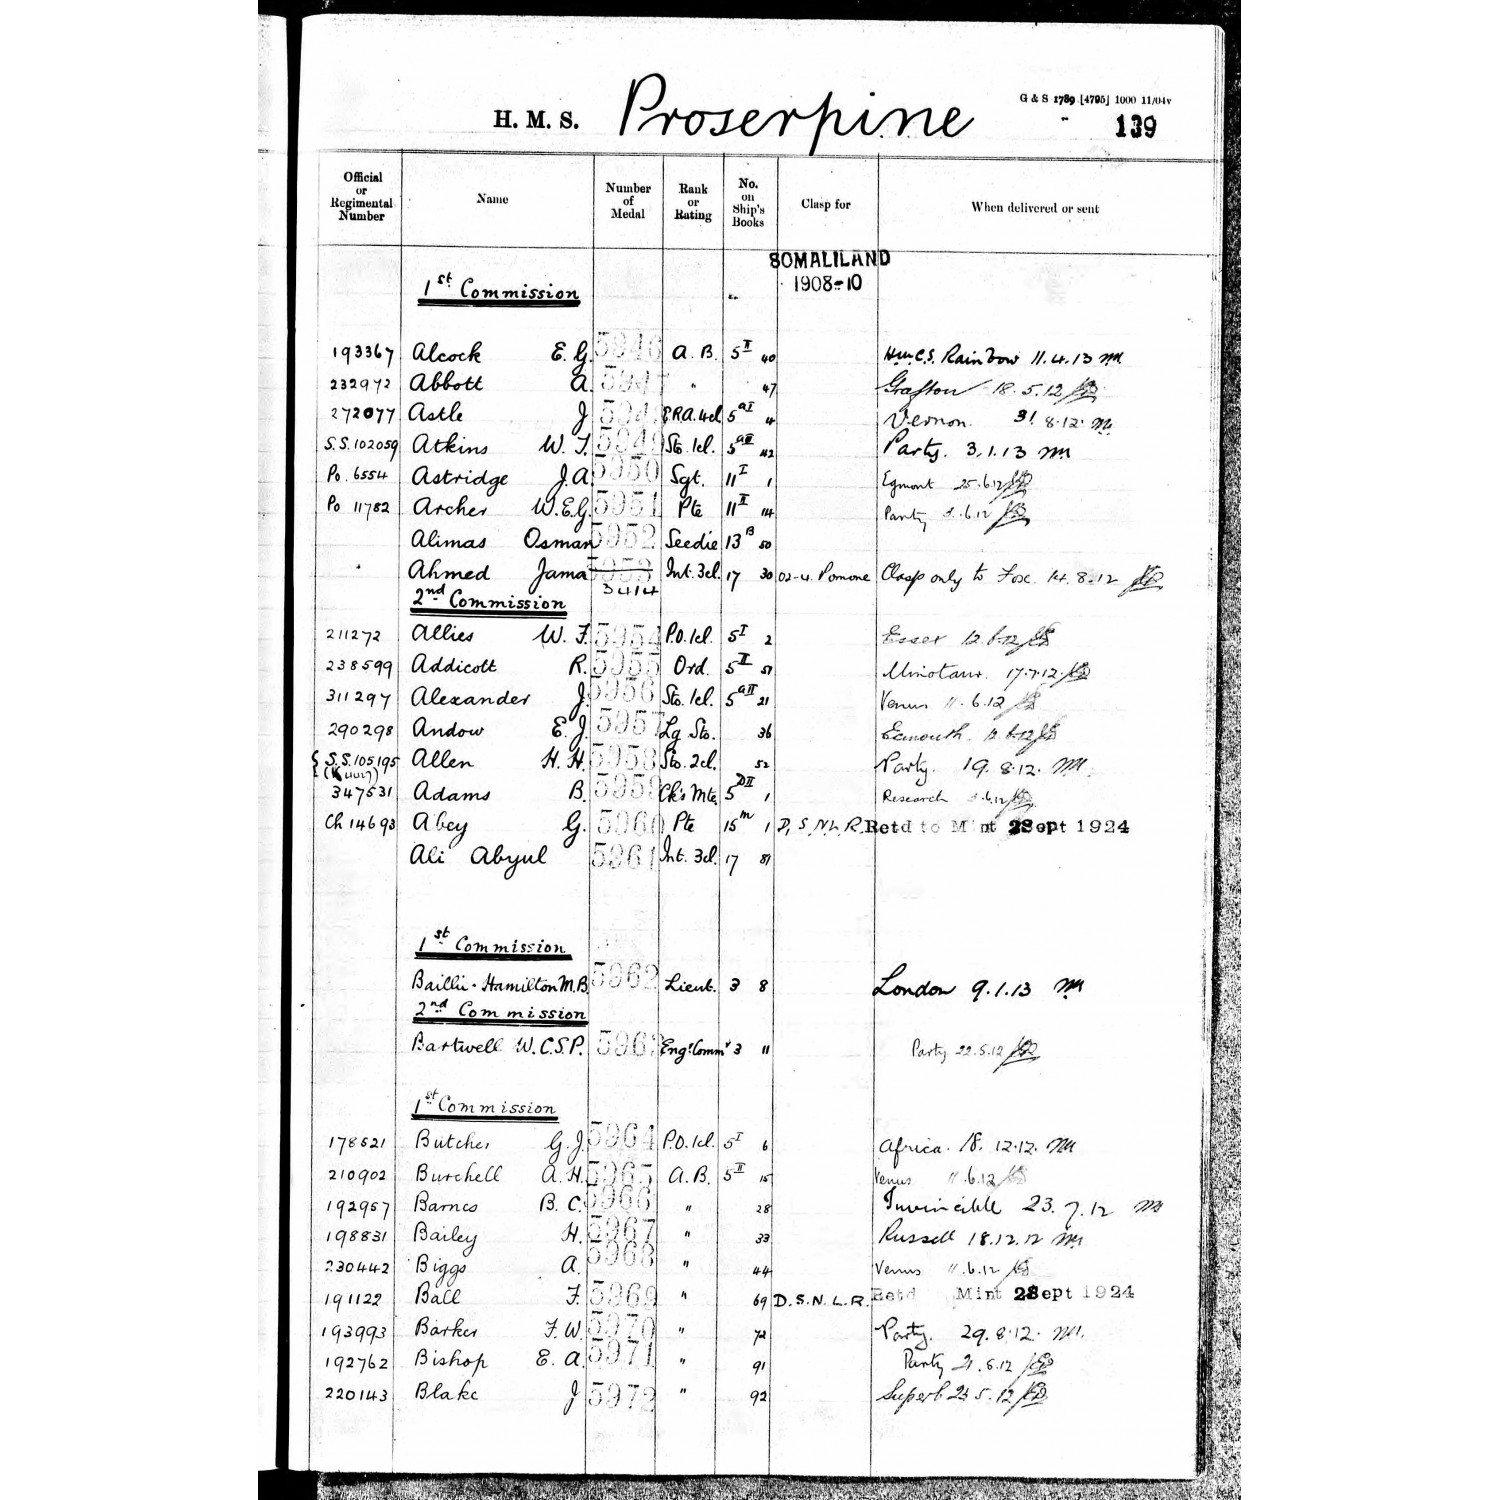 G & S 1789 [4795] 1000 11/04v
H. M. S. Proserpine 139
Official or Regimental Number Name Number of Medal Rank or Rating No. on Ship's Books Clasp for When delivered or sent
SOMALILAND
1908-10
1st Commission
193367 Alcock E. G. 5946 A. B. 5 II 40 H.M.C.S. Rainbow 11.4.13
232972 Abbott A. 5947 " 47 Grafton 18.5.12
272077 Astle J 594 E.R.A. 4cl 5 aI 4 Vernon. 31.8.12.
S.S.102059 Atkins W. J. 5949 Sto. 1cl. 5 aII 42 Party. 3.1.13
Po. 6554 Astridge J.A 5950 Sgt. 11 I 1 Egmont 25.6.12
Po 11782 Archer W.E.G. 5951 Pte 11 II 14 Party .6.12
Alimas Osman 5952 Seedie 13 B 50
Ahmed Jama 5953 Int. 3cl. 17 30 02-4. Pomone Clasp only to Fox 14.8.12
3414
2nd Commission
211272 Allies W. F. 5954 P.O. 1cl. 5 I 2 Essex 12.6.12
238599 Addicott R. 5955 Ord. 5 II 51 Minotaur. 17.7.12.
311297 Alexander J. 5956 Sto. 1cl. 5 aII 21 Venus 11.6.12
290298 Andow E. J. 5957 Lg Sto. 36 Exmouth. 12.6.12
{ S.S.105195 Allen H. H. 5958 Sto. 2cl. 52 Party. 19.8.12.
347531 Adams B. 5959 Ck's Mte. 5 DII 1 Research .6.12
Ch 14693 Abey G. 5960 Pte 15 m 1 D.S.N.L.R. Retd to Mint 28 Sept 1924
Ali Abyul 5961 Int. 3cl. 17 81
1st Commission
Baillie-Hamilton M.B. 5962 Lieut. 3 8 London 9.1.13
2nd Commission
Bartwell W.C.S.P. 596 Engr. Commr 3 11 Party 22.5.12
1st Commission
178521 Butcher G. J. 5964 P.O. 1cl. 5 I 6 Africa. 18.12.12.
210902 Burchell A. H. 5965 A. B. 5 II 15 Venus 11.6.12
192957 Barnes B. C. 5966 " 28 Invincible 23.7.12
198831 Bailey H. 5967 " 33 Russell 18.12.12
230442 Biggs A. 5968 " 44 Venus 11.6.12
191122 Ball F. 5969 " 69 D.S.N.L.R. Retd Mint 28 Sept 1924
193993 Barker F. W. 5970 " 72 Party. 29.8.12.
192762 Bishop E. A. 5971 " 91 Party 21.6.12
220143 Blake J 5972 " 92 Superb 23.5.12